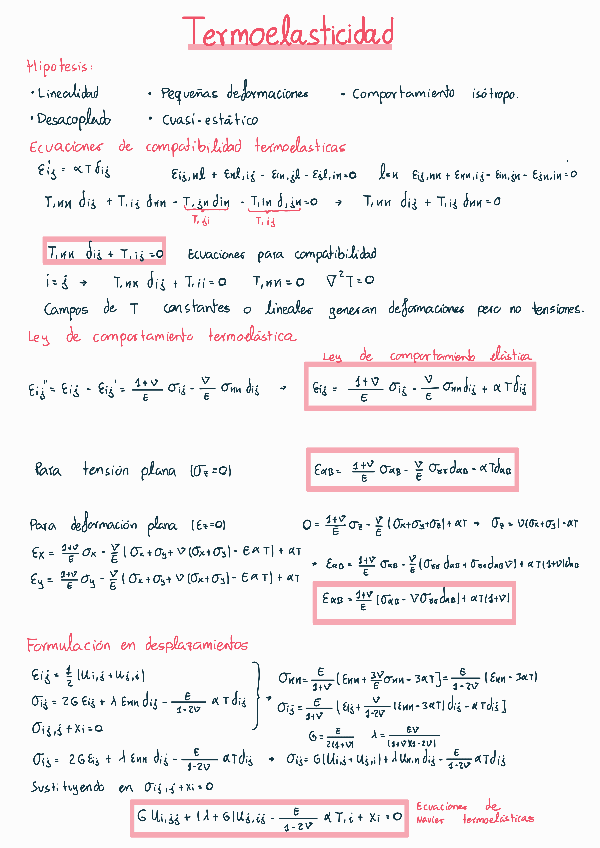 Termoelasticidad
Hipotesis:
· Linealidad · Pequeñas deformaciones - Comportamiento isótropo.
· Desacoplado · Cuasi-estático
Ecuaciones de compatibilidad termoelasticas
εij' = αTδij εij,kl + εkl,ij - εik,jl - εjl,ik=0 l=k εij,kk + εkk,ij - εik,jk - εjk,ik=0
T,kk δij + T,ij δkk - T,jk δik - T,ik δjk=0 → T,kk δij + T,ij δkk=0
T,ji T,ij
T,kk δij + T,ij=0 Ecuaciones para compatibilidad
i=j → T,kk δij + T,ii=0 T,kk=0 ∇²T=0
Campos de T constantes o lineales generan deformaciones pero no tensiones.
Ley de comportamiento termoelástica
Ley de comportamiento elástica
εij''= εij - εij' = (1+ν)/E σij - ν/E σkk δij → εij = (1+ν)/E σij - ν/E σkk δij + αTδij
Para tensión plana (σz=0) εαβ = (1+ν)/E σαβ - ν/E σγγ δαβ - αTδαβ
Para deformación plana (εz=0) 0 = (1+ν)/E σz - ν/E (σx+σy+σz) + αT → σz = ν(σx+σy) - αT
εx = (1+ν)/E σx - ν/E (σx+σy+ν(σx+σy) - EαT) + αT
εy = (1+ν)/E σy - ν/E (σx+σy+ν(σx+σy) - EαT) + αT
→ εαβ = (1+ν)/E σαβ - ν/E (σγγ δαβ + σγγ δαβ ν) + αT(1+ν)δαβ
εαβ = (1+ν)/E (σαβ - νσγγ δαβ) + αT(1+ν)
Formulación en desplazamientos
εij = 1/2 (ui,j + uj,i) σkk = E/(1+ν) [εkk + 3ν/E σkk - 3αT] = E/(1-2ν) (εkk - 3αT)
σij = 2Gεij + λεkk δij - E/(1-2ν) αTδij → σij = E/(1+ν) [εij + ν/(1-2ν) (εkk - 3αT)δij - αTδij]
σij,j + xi=0 G = E/(2(1+ν)) λ = Eν/((1+ν)(1-2ν))
σij = 2Gεij + λεkk δij - E/(1-2ν) αTδij → σij = G(ui,j + uj,i) + λuk,k δij - E/(1-2ν) αTδij
Sustituyendo en σij,j + xi=0
G ui,jj + (λ+G)uj,ji - E/(1-2ν) αT,i + xi = 0 Ecuaciones de
Navier termoelásticas